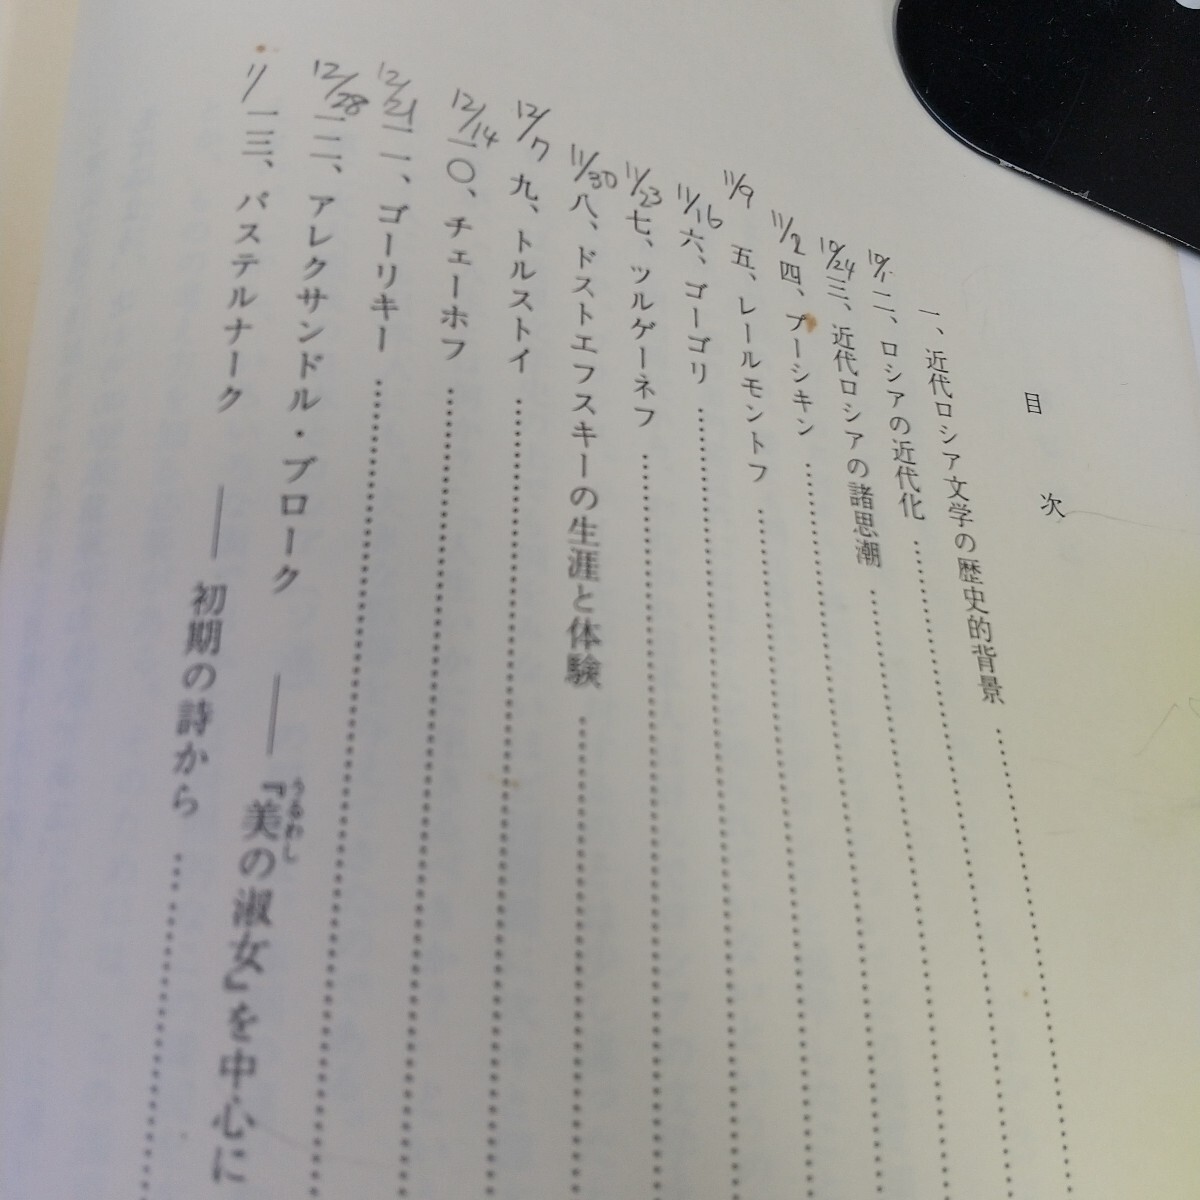 目次
一、近代ロシア文学の歴史的背景
二、ロシアの近代化
10/24 三、近代ロシアの諸思潮
11/2 四、プーシキン
11/9 五、レールモントフ
11/16 六、ゴーゴリ
11/23 七、ツルゲーネフ
11/30 八、ドストエフスキーの生涯と体験
12/7 九、トルストイ
12/14 一〇、チェーホフ
12/21 一一、ゴーリキー
12/28 一二、アレクサンドル・ブローク ――『美の淑女』を中心に
うるわし
一三、パステルナーク ―― 初期の詩から